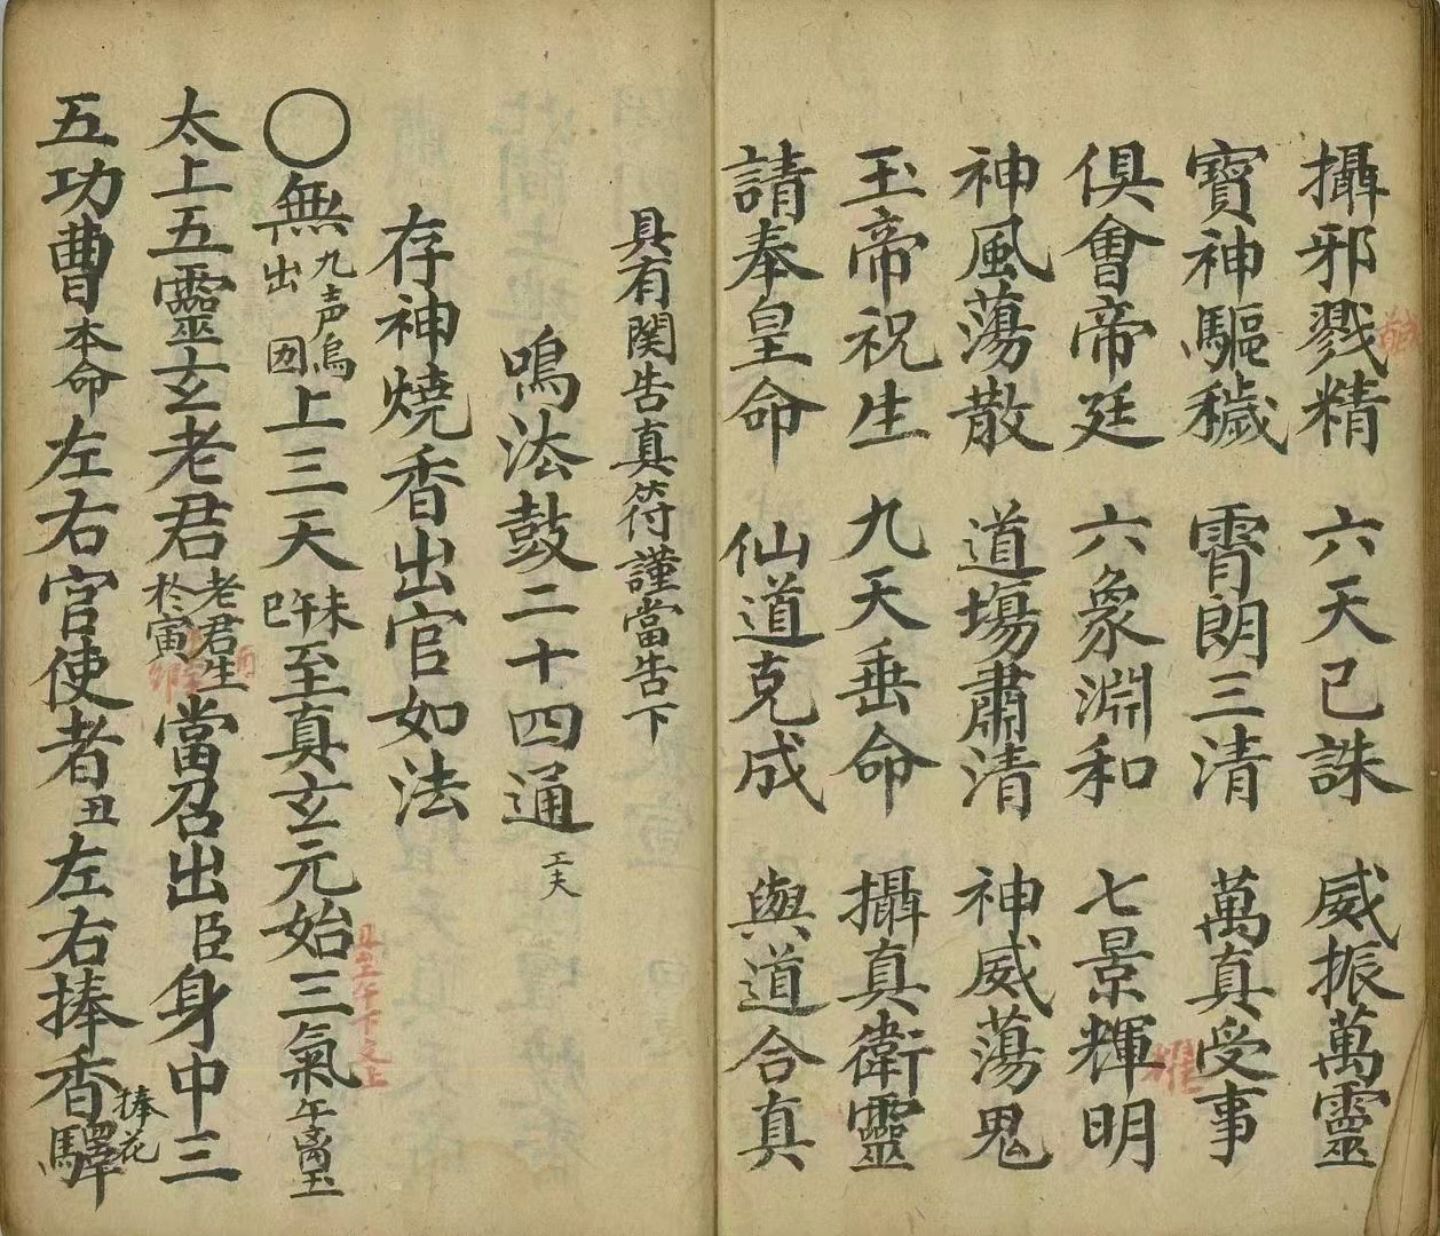 攝邪戮精 六天已誅 威振萬靈
寶神驅穢 霄朗三清 萬真受事
俱會帝廷 六象淵和 七景輝明
耀
神風蕩散 道場肅清 神威蕩鬼
玉帝祝生 九天垂命 攝真衛靈
請奉皇命 仙道克成 與道合真
具有関告真符謹當告下
鳴法鼓二十四通 工夫
存神燒香出官如法
〇無九声烏出 囡上三天未午巳至真玄元始三氣午离玉
太上五靈玄老君老君生於寅當召出臣身中三
五功曹本命左右官使者丑左右捧香驛
捧花